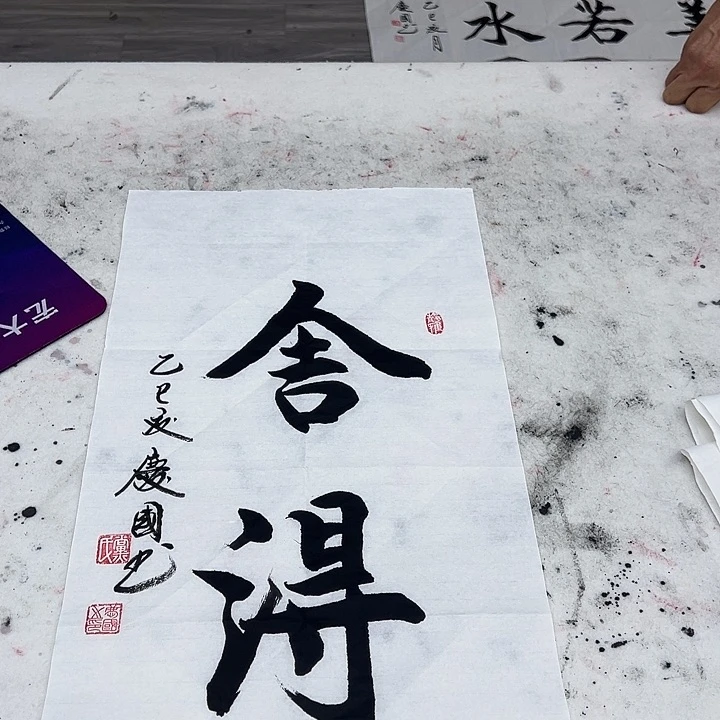 舍得
乙巳夏慶國书
善若水
乙巳夏月
慶國书